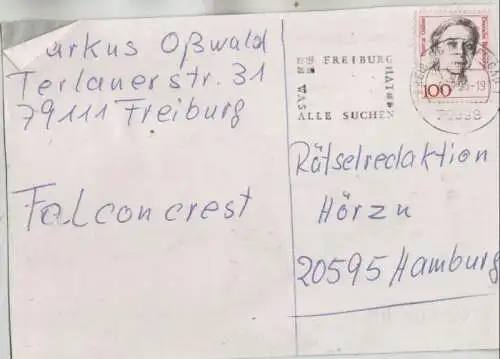 arkus Oßwald
Terlanerstr. 31
79111 Freiburg
Falconcrest
FREIBURG
ALLE SUCHEN
100
Rätselredaktion
Hörzu
20595 Hamburg